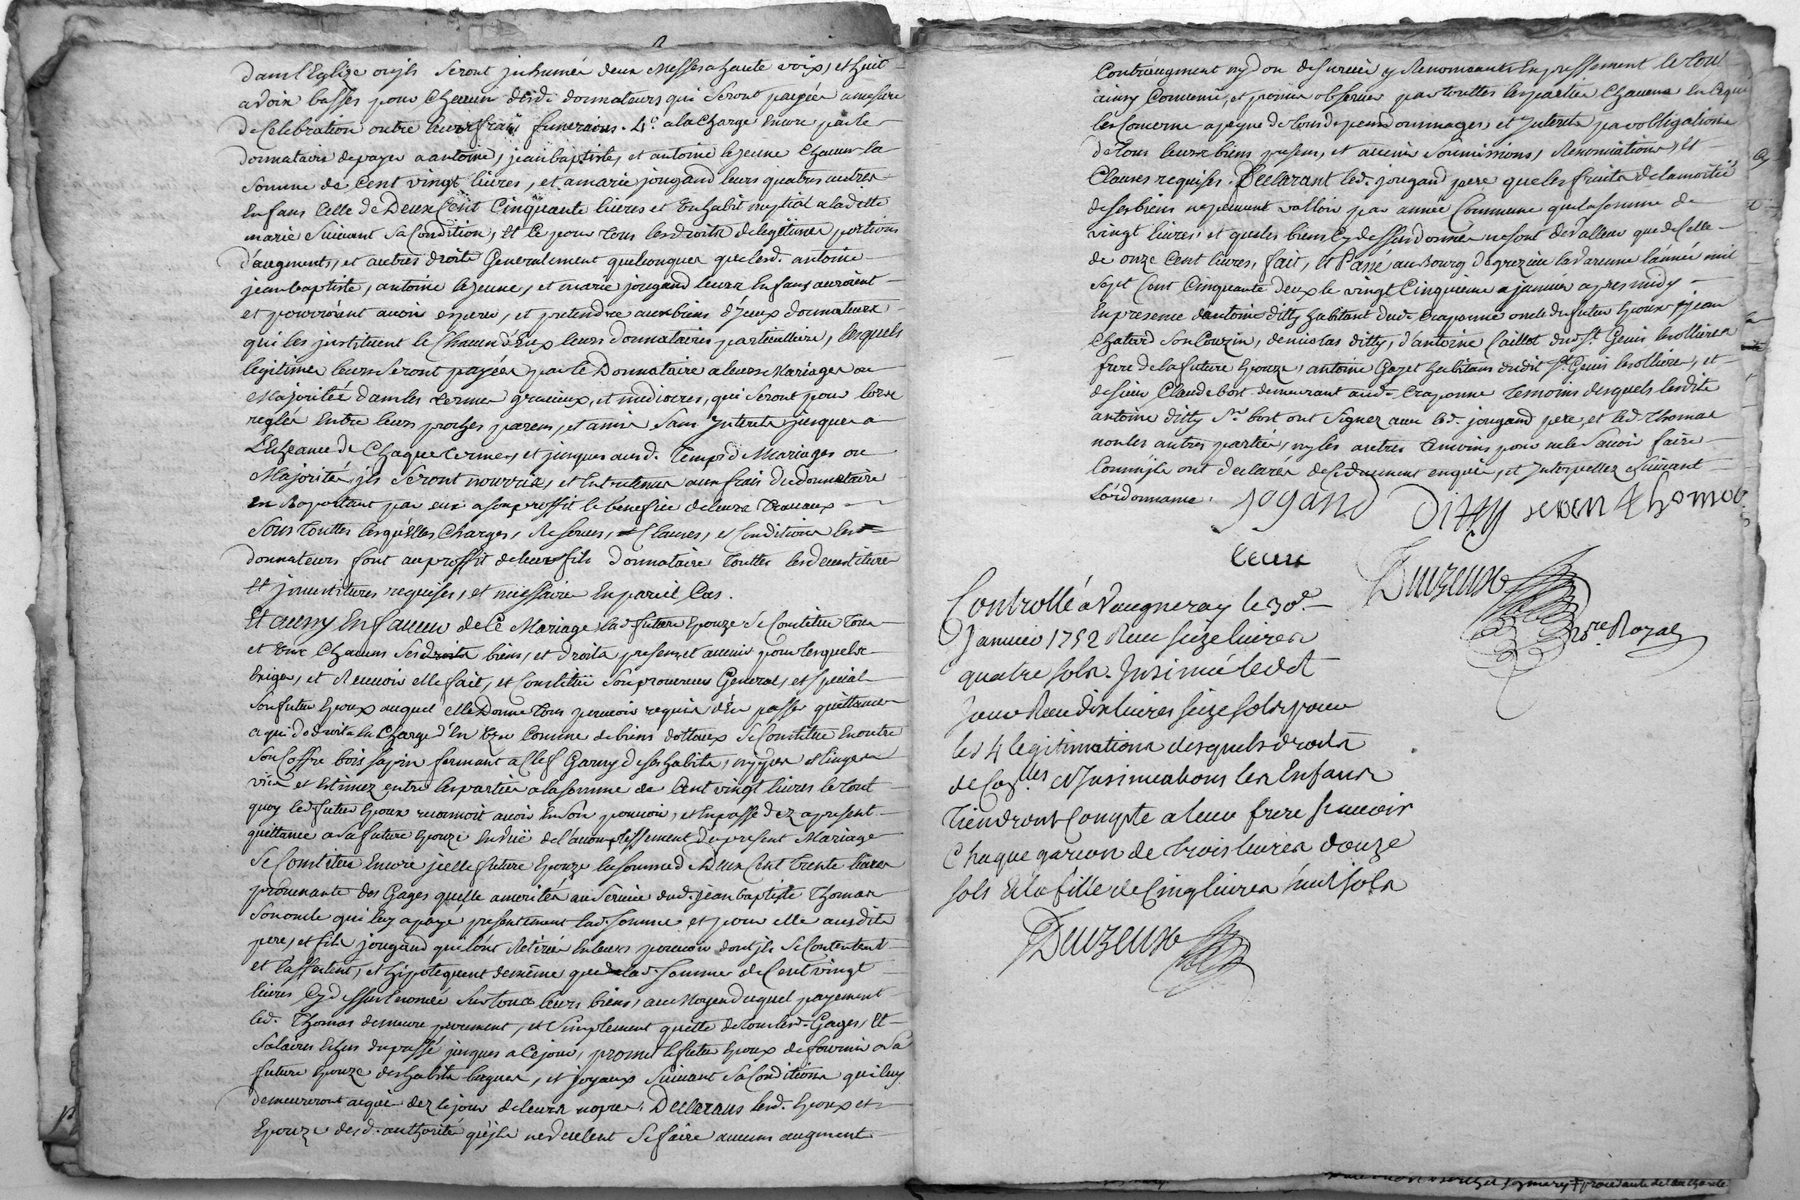 dans l'Eglize ou jls seront jnhumés deux Messes a haute voix, et huit
a voix basses pour Chacun desd. donnateurs qui seront payées a mesure
de Celebration outre leurs frais funeraires. 4.º a la Charge encore par le
donnataire de payer a antoine, jean baptiste, et antoine le jeune Chacun la
somme de Cent vingt livres, et a marie jougand leurs quatres autres
Enfans Celle de Deux Cent Cinquante livres et un habit nuptial a ladite
marie suivant sa Condition, Et Ce pour tous les droits de legitimes portions
d'augments, et autres droits Generalement quelconques que lesd. antoine
jean baptiste, antoine le jeune, et marie jougand leurs Enfans auroient
et pourroient avoir esperer, et pretendre aux biens d'jceux donnateurs
qui les jnstituent le Chacun d'Eux leurs donnataires particulliers, lesquels
legitimes leurs seront payées par le Donnataire a leurs Mariages ou
Majorités dans les termes gracieux, et mediocres, qui seront pour lors
reglés entre leurs proches parens, et amis sans Jnterets jusques a
L'Echeance de Chaque termes, et jusques aud. temps de Mariages ou
Majorités jls seront nourris, et Entretenus aux frais du donnataire
en Raportant par eux a son proffit le benefice de leurs travaux
Sous touttes lesquelles Charges, Reserves, Clauses, et Conditions les
donnateurs font au proffit de leur fils donnataire touttes les devestitures
Et jnvestitures requises, et necessaires En pareil Cas.
Et aussy En faveur de Ce Mariage lad. future Epouze se Constitue tous
et uns Chacuns ses droits biens, et droits presens, et avenir pour lesquels
Exiger, et Recevoir elle fait, et Constitue son procureur General, et special
son futur Epoux auquel elle Donne tous pouvoir requis d'En passer quittances
a qui de droit a la Charge d'En Uzer Comme de biens dottaux se Constitue En outre
son Coffre bois sapin fermant a Clef Garny de ses habits, nippes et linges
vûs et Estimez entre les parties a la somme de Cent vingt livres le tout
quoy led. futur Epoux reconnoit avoir En son pouvoir, et En passe dez a present
quittance a sa future Epouze En vûe de l'accomplissement du present Mariage
Se Constitue Encore jcelle future Epouze la somme de Deux Cent trente livres
provenante des Gages quelle a merités au service dud. jean baptiste Thomas
son oncle qui luy a payé presentement lad. somme et pour elle ausdits
pere, et fils jougand qui l'ont Retirée En leurs pouvoirs dont jls se Contentent
et l'assurent, et hipotequent de même que lad. somme de Cent vingt
livres Cy dessus Enoncée sur tous leurs biens, au Moyen duquel payement
led. Thomas demeure purement, et simplement quitte de tous lesd. Gages, Et
salaires Echus du passé jusques a Ce jour, promet le futur Epoux de fournir a sa
future Epouze des habits bagues, et joyaux suivant sa Condition qui luy
demeureront acquis dez le jour de leurs nopces, Declarans lesd. Epoux et
Epouze desd. authorités qu'jls ne veulent se faire aucuns augment
Contreaugment ny don de survie y Renonceants Expressement le tout
ainsy Convenu, et promis observer par touttes les parties Chacune En ce que
les Concerne a peyne de tous depens dommages, et Jnterets par obligations
de tous leurs biens presens, et avenir soumissions, Renonciations, Et
Clauses requises. Declarant led. jougand pere que les fruits de la moitié
de ses biens ne peuvent valloir par année Commune que la somme de
vingt livres, et que les biens Cy dessus donnés ne sont de valleur que de Celle
de onze Cent livres, fait, Et Passé au Bourg de grezieu la varenne l'année mil
sept Cent Cinquante deux le vingt Cinquieme janvier apres midy
En presence d'antoine ditty habitant dud. Craponne oncle du futur Epoux, jean
Chatard son Couzin, de nicolas ditty, d'antoine Caillot dud. St. Genis les ollieres
frere de la future Epouze, antoine Gayet habitans dudit St. Genis les ollieres, et
de sieur Claude bost demeurant aud. Craponne temoins desquels lesdits
antoine ditty Sr. bost ont signez avec led. jougand pere, et led. Thomas
non les autres parties, ny les autres temoins pour ne le sçavoir faire
Comme jls ont declarés de Ce duement enquis, et Jnterpellez suivant
L'ordonnance.
jogand ditty thomas
Duizeux
nre. Royal
Controllé a Vaugneray le 30e.
Janvier 1752 Receu seize livres
quatre sols. Jnsinué led.t
jour Receu dix livres seize sols pour
les 4 legitimations desquels droits
de Con.lles et Jnsinuations les Enfans
tiendront Compte a leur frere sçavoir
Chaque garcon de trois livres douze
sols et la fille de Cinq livres huit sols
Duizeux